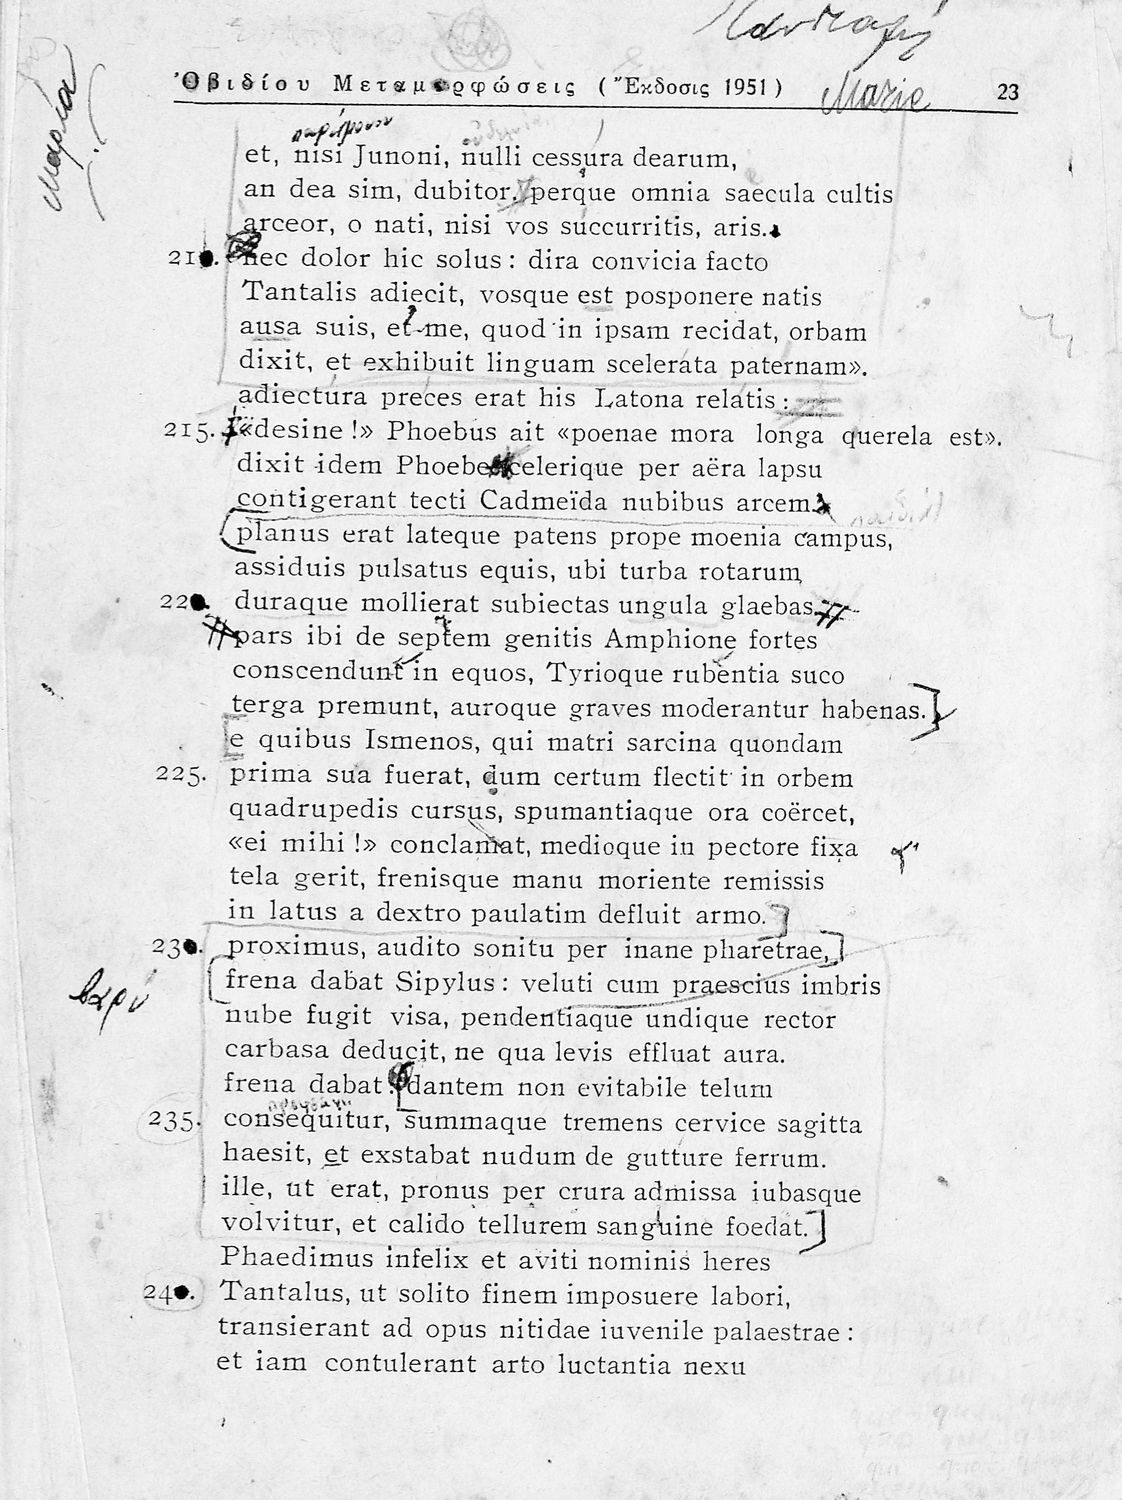 Ὀβιδίου Μεταμορφώσεις (Ἔκδοσις 1951) Marie 23
Μαρία
et, nisi Junoni, nulli cessura dearum,
an dea sim, dubitor. perque omnia saecula cultis
arceor, o nati, nisi vos succurritis, aris.
210. nec dolor hic solus : dira convicia facto
Tantalis adiecit, vosque est posponere natis
ausa suis, et me, quod in ipsam recidat, orbam
dixit, et exhibuit linguam scelerata paternam».
adiectura preces erat his Latona relatis :
215. «desine !» Phoebus ait «poenae mora longa querela est».
dixit idem Phoebe celerique per aëra lapsu
contigerant tecti Cadmeïda nubibus arcem.
planus erat lateque patens prope moenia campus,
assiduis pulsatus equis, ubi turba rotarum
220. duraque mollierat subiectas ungula glaebas.
pars ibi de septem genitis Amphione fortes
conscendunt in equos, Tyrioque rubentia suco
terga premunt, auroque graves moderantur habenas.
e quibus Ismenos, qui matri sarcina quondam
225. prima sua fuerat, dum certum flectit in orbem
quadrupedis cursus, spumantiaque ora coërcet,
«ei mihi !» conclamat, medioque in pectore fixa
tela gerit, frenisque manu moriente remissis
in latus a dextro paulatim defluit armo.
230. proximus, audito sonitu per inane pharetrae,
frena dabat Sipylus : veluti cum praescius imbris
nube fugit visa, pendentiaque undique rector
carbasa deducit, ne qua levis effluat aura.
frena dabat : dantem non evitabile telum
235. consequitur, summaque tremens cervice sagitta
haesit, et exstabat nudum de gutture ferrum.
ille, ut erat, pronus per crura admissa iubasque
volvitur, et calido tellurem sanguine foedat.
Phaedimus infelix et aviti nominis heres
240. Tantalus, ut solito finem imposuere labori,
transierant ad opus nitidae iuvenile palaestrae :
et iam contulerant arto luctantia nexu